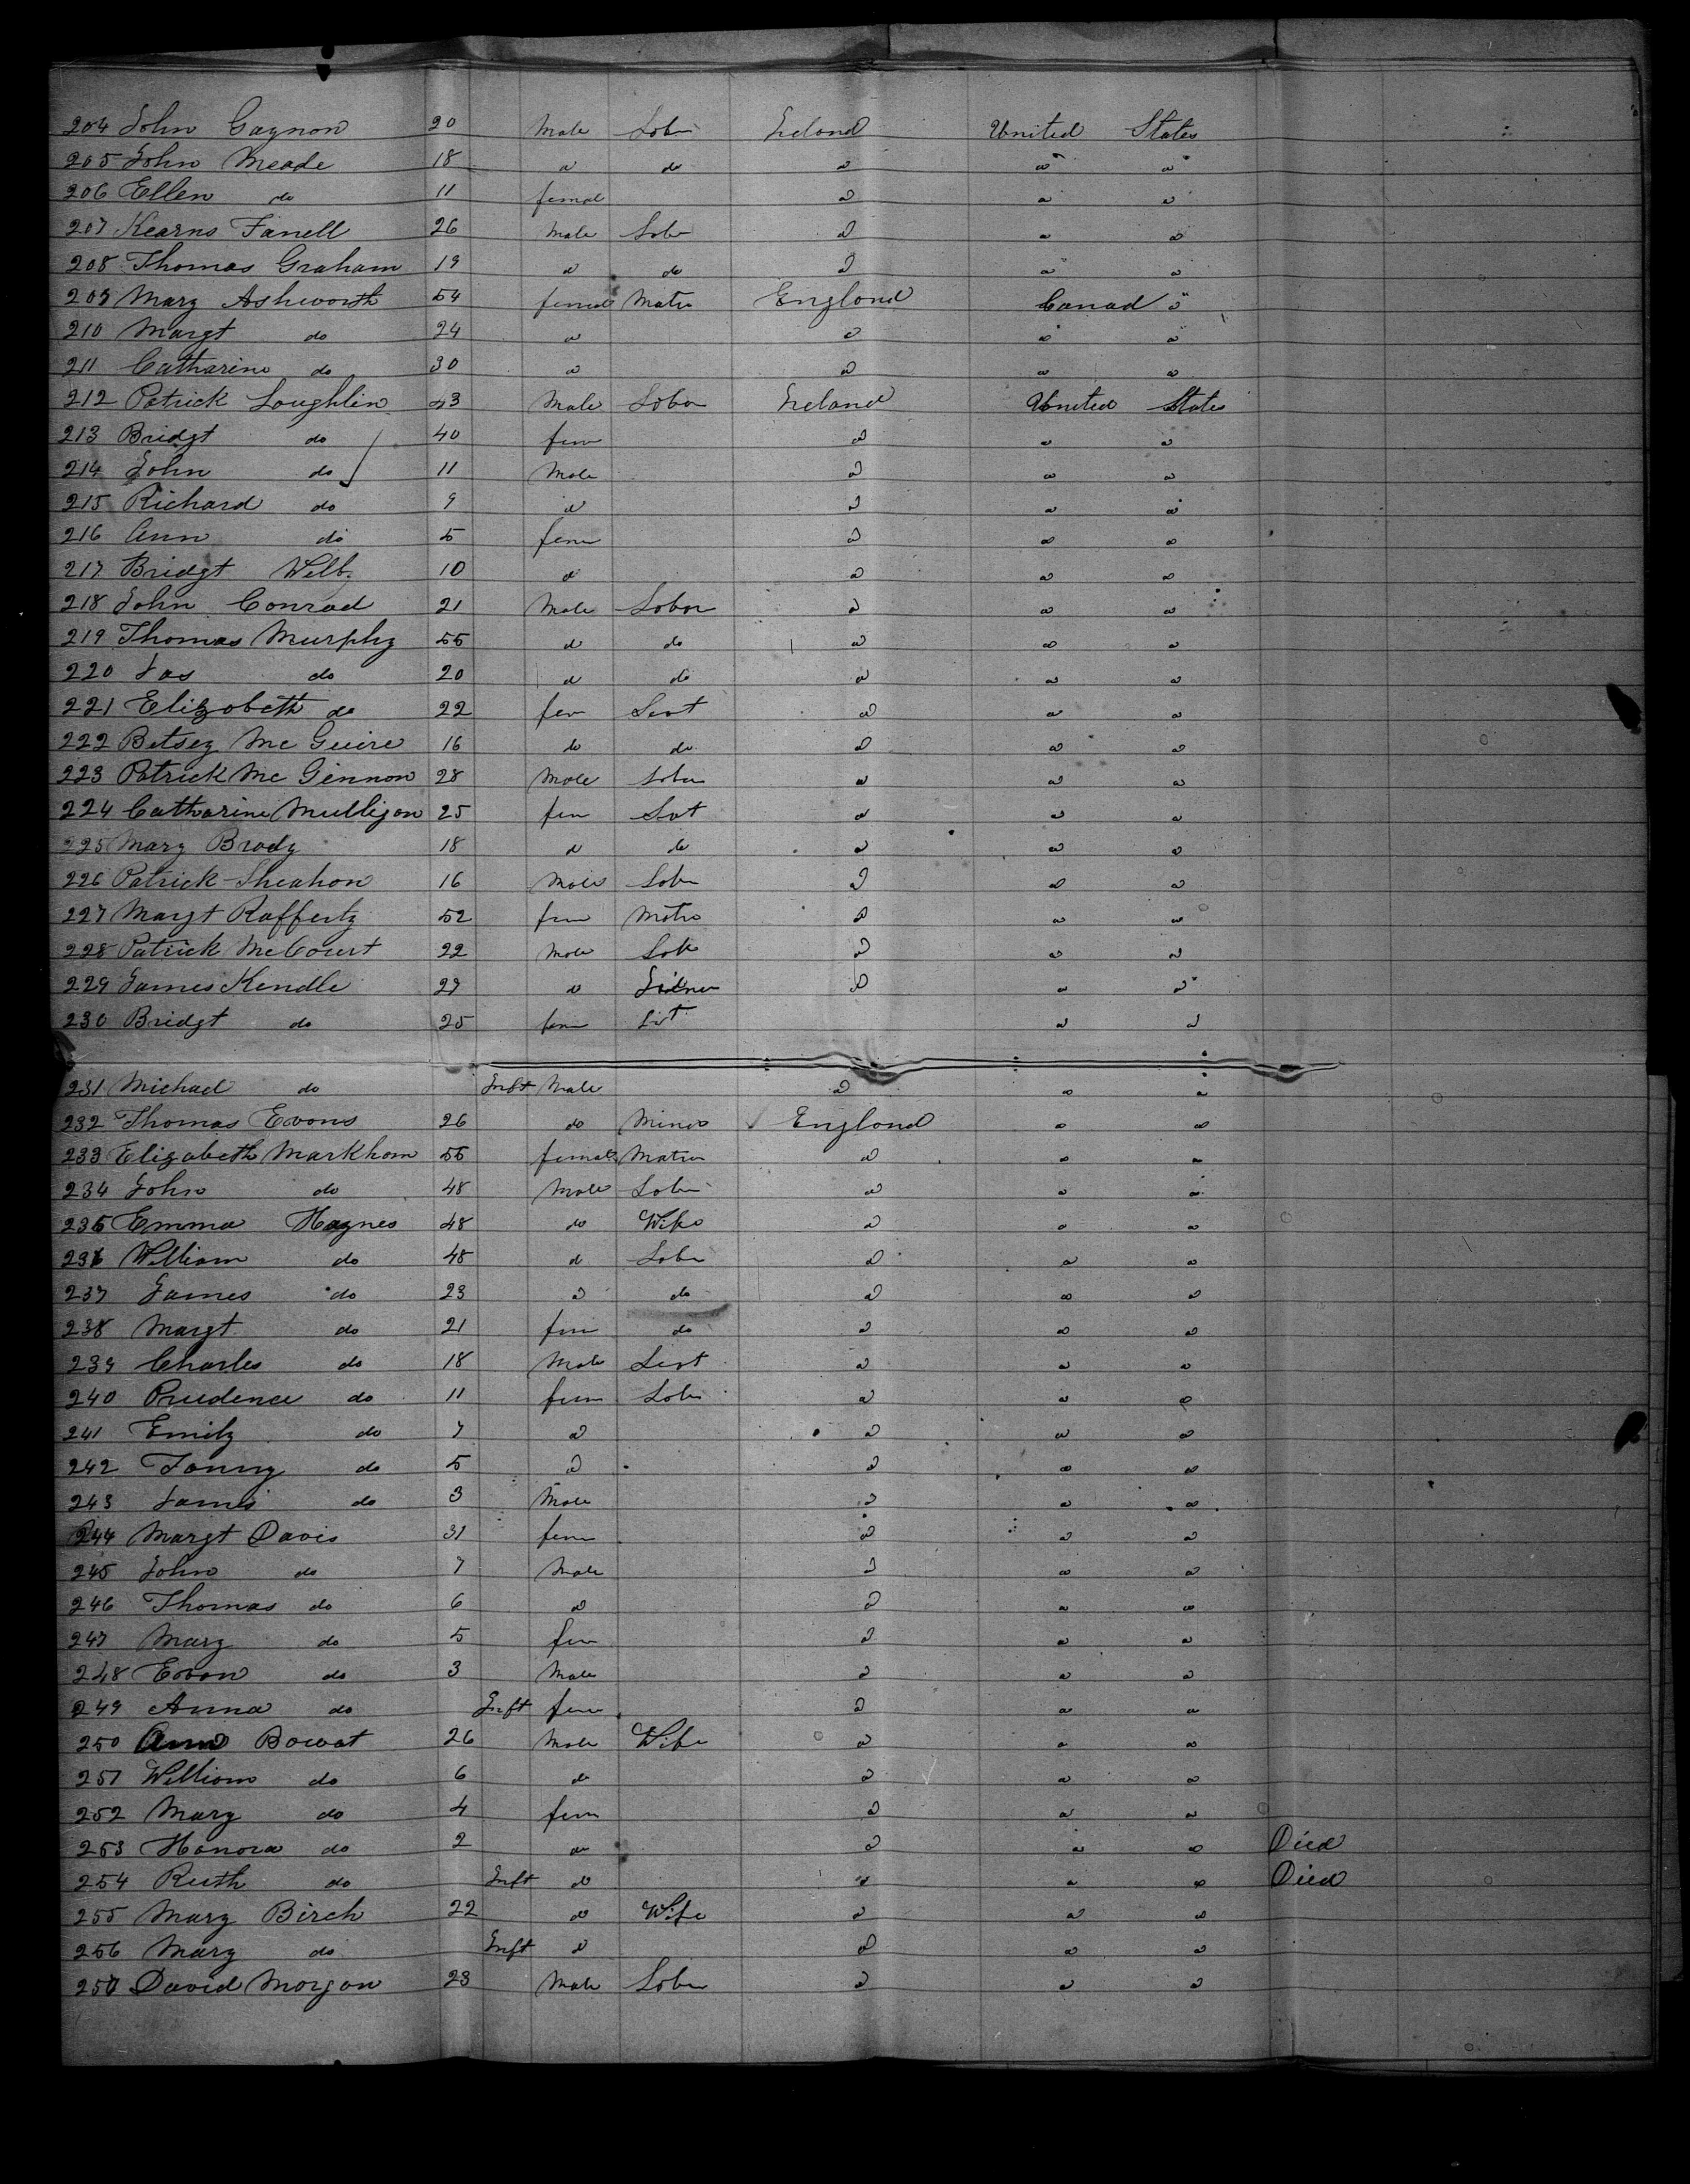 204 John Gagnon 20 Male Labr Ireland United States
205 John Meade 18 do do do do do
206 Ellen do 11 femal do do do
207 Kearns Farrell 26 Male Labr do do do
208 Thomas Graham 19 do do do do do
209 Mary Ashworth 54 female Matrn England Canada
210 Margt do 24 do do do do
211 Catharine do 30 do do do do
212 Patrick Loughlin 43 Male Labor Ireland United States
213 Bridgt do 40 fem do do do
214 John do 11 Male do do do
215 Richard do 9 do do do do
216 Ann do 5 fem do do do
217 Bridgt 10 do do do do
218 John Conrad 21 Male Labor do do do
219 Thomas Murphy 55 do do do do do
220 Jas do 20 do do do do do
221 Elizabeth do 22 fem Sevt do do do
222 Betsey Mc Guire 16 do do do do do
223 Patrick Mc Ginnon 28 Male Labor do do do
224 Catharine Mulligan 25 fem Sevt do do do
225 Mary Brady 18 do do do do do
226 Patrick Sheahan 16 Male Labr do do do
227 Margt Rafferty 52 fem Matrn do do do
228 Patrick McCourt 22 Male Labr do do do
229 James Kendle 27 do do do do
230 Bridgt do 25 fem Sevt do do
231 Michael do Inft Male do do do
232 Thomas Evans 26 do Miner England do do
233 Elizabeth Markham 55 female Matrn do do do
234 John do 48 Male Labr do do do
235 Emma Haynes 48 do Wife do do do
236 William do 48 do Labr do do do
237 James do 23 do do do do do
238 Margt do 21 fem do do do do
239 Charles do 18 Male Sevt do do do
240 Prudence do 11 fem Labr do do do
241 Emily do 7 do do do do
242 Fanny do 5 do do do do
243 James do 3 Male do do do
244 Margt Davis 31 fem do do do
245 John do 7 Male do do do
246 Thomas do 6 do do do do
247 Mary do 5 fem do do do
248 Evan do 3 Male do do do
249 Anna do Inft fem do do do
250 Ann Bowat 26 Male Wife do do do
251 William do 6 do do do do
252 Mary do 4 fem do do do
253 Honora do 2 do do do do Died
254 Ruth do Inft do do do do Died
255 Mary Birch 22 do Wife do do do
256 Mary do Inft do do do do
257 David Morgan 23 Male Labr do do do